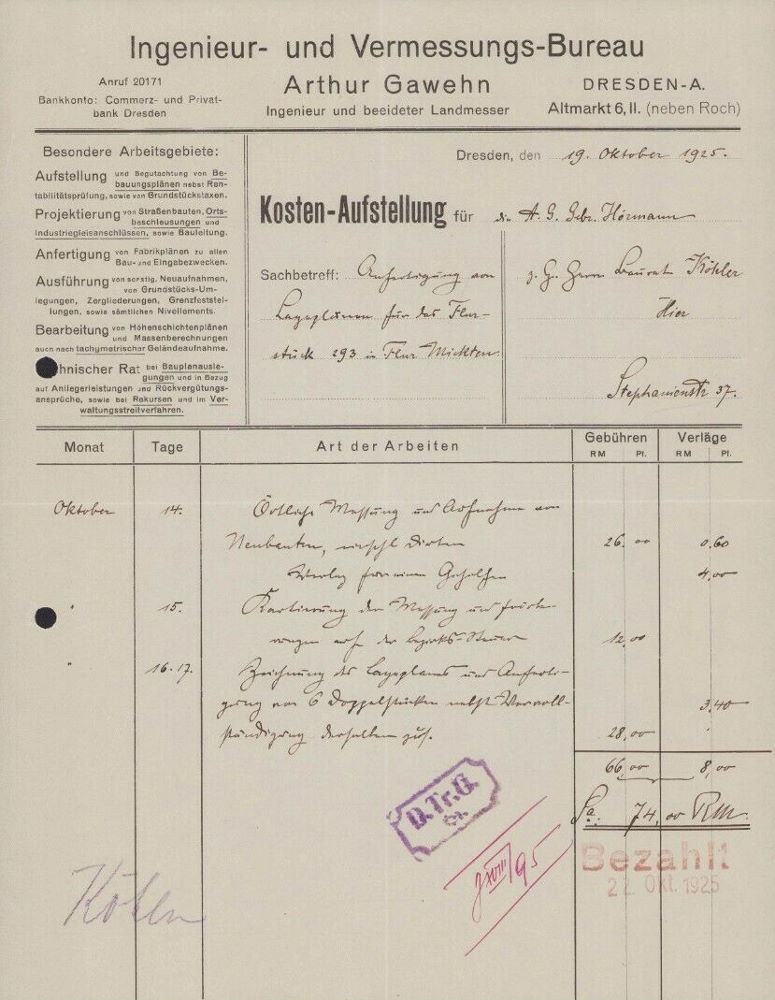 Ingenieur- und Vermessungs-Bureau
Anruf 20171
Bankkonto: Commerz- und Privat-
bank Dresden
Arthur Gawehn
Ingenieur und beeideter Landmesser
DRESDEN-A.
Altmarkt 6, II. (neben Roch)
Besondere Arbeitsgebiete:
Aufstellung und Begutachtung von Be-
bauungsplänen nebst Ren-
tabilitätsprüfung, sowie von Grundstückstaxen.
Projektierung von Straßenbauten, Orts-
beschleusungen und
Industriegleisanschlüssen, sowie Bauleitung.
Anfertigung von Fabrikplänen zu allen
Bau- und Eingabezwecken.
Ausführung von sonstig. Neuaufnahmen,
von Grundstücks-Um-
legungen, Zergliederungen, Grenzfeststel-
lungen, sowie sämtlichen Nivellements.
Bearbeitung von Höhenschichtenplänen
und Massenberechnungen
auch nach tachymetrischer Geländeaufnahme.
hnischer Rat bei Bauplanausle-
gungen und in Bezug
auf Anliegerleistungen und Rückvergütungs-
ansprüche, sowie bei Rekursen und im Ver-
waltungsstreitverfahren.
Dresden, den 19. Oktober 1925.
Kosten-Aufstellung für die A. G. Gebr. Hörmann
Sachbetreff: Anfertigung von
Lageplänen für das Flur-
stück 293 in Flur Mickten
z. H. Herrn Baurat Köhler
Hier
Stephanienstr 37.
Monat Tage Art der Arbeiten Gebühren Verläge
RM Pf. RM Pf.
Oktober 14. Örtliche Messung und Aufnahme von
Neubauten, 26,00 0,60
Verlag für einen Gehilfen 4,00
" 15. Kartierung der Messung und
der Bezirks-Steuer 12,00
" 16-17. Zeichnung des Lageplanes und Anferti-
gung von 6 Doppelstücken nebst Vervoll- 3,40
ständigung derselben zus. 28,00
66,00 8,00
Sa: 74,00 RM.
D.Tr.G.
Bezahlt
22. Okt. 1925